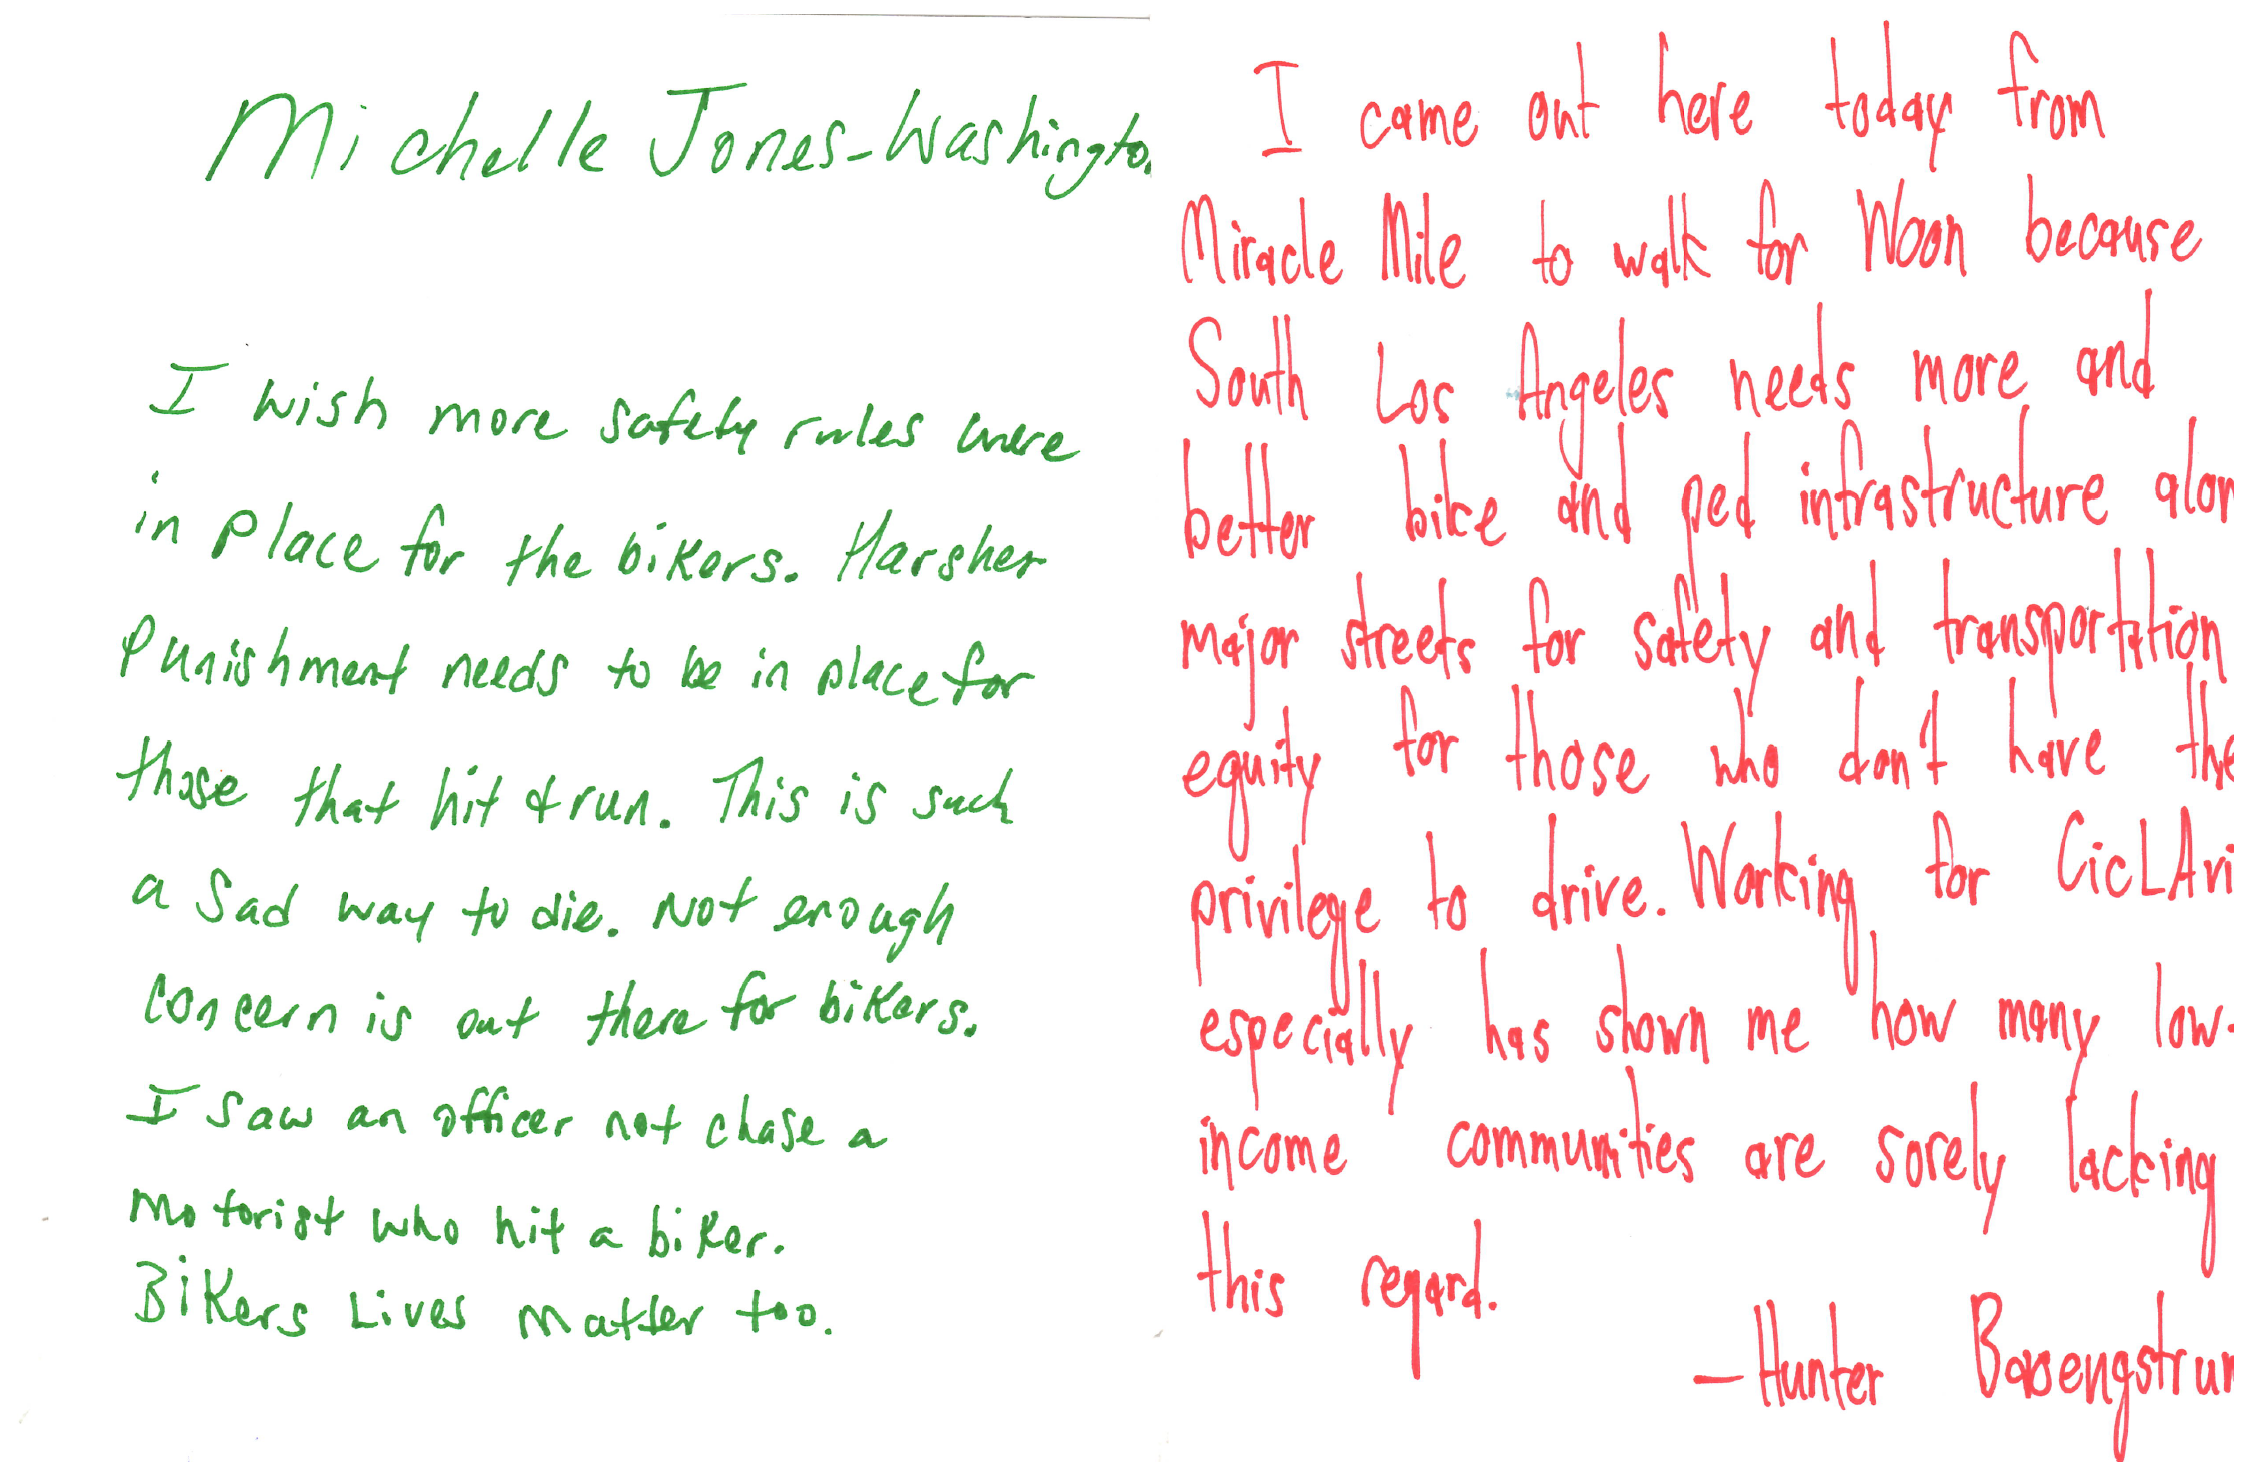 Michelle Jones-Washington
I wish more safety rules were
in place for the bikers. Harsher
Punishment needs to be in place for
those that hit & run. This is such
a sad way to die. Not enough
concern is out there for bikers.
I saw an officer not chase a
motorist who hit a biker.
Bikers Lives matter too.
I came out here today from
Miracle Mile to walk for Woon because
South Los Angeles needs more and
better bike and ped infrastructure alon
major streets for safety and transportation
equity for those who don't have the
privilege to drive. Working for CicLAvi
especially has shown me how many low-
income communities are sorely lacking
this regard.
—Hunter